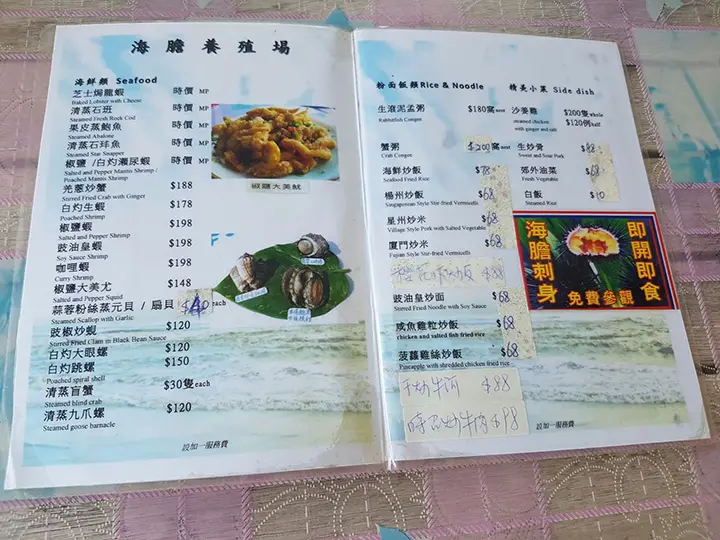 海膽養殖場
海鮮類 Seafood
芝士焗龍蝦 時價 MP
Baked Lobster with Cheese
清蒸石班 時價 MP
Steamed Fresh Rock Cod
果皮蒸鮑魚 時價 MP
Steamed Abalone
清蒸石玤魚 時價 MP
Steamed Star Snapper
椒鹽 /白灼瀨尿蝦 時價 MP
Salted and Pepper Mantis Shrimp /
Poached Mantis Shrimp
羌蔥炒蟹 $188
Stirred Fried Crab with Ginger
白灼生蝦 $178
Poached Shrimp
椒鹽蝦 $198
Salted and Pepper Shrimp
豉油皇蝦 $198
Soy Sauce Shrimp
咖喱蝦 $198
Curry Shrimp
椒鹽大美尤 $148
Salted and Pepper Squid
蒜蓉粉絲蒸元貝 / 扇貝 $40each
Steamed Scallop with Garlic
豉椒炒蜆 $120
Stirred Fried Clam in Black Bean Sauce
白灼大眼螺 $120
白灼跳螺 $150
Poached spiral shell
清蒸盲蟹 $30隻each
Steamed blind crab
清蒸九爪螺 $120
Steamed goose barnacle
設加一服務費
椒鹽大美魷
粉面飯類Rice & Noodle
生滾泥孟粥 $180窩
Rabbitfish Congee
蟹粥 $200窩
Crab Congee
海鮮炒飯 $78
Seafood Fried Rice
楊州炒飯 $68
Singaporean Style Stir-fried Vermicelli
星州炒米 $68
Village Style Pork with Salted Vegetable
廈門炒米 $68
Fujian Style Stir-fried Vermicelli
炒飯 $88
豉油皇炒面 $68
Stirred Fried Noodle with Soy Sauce
咸魚雞粒炒飯 $68
chicken and salted fish fried rice
菠蘿雞絲炒飯 $68
Pineapple with shredded chicken fried rice
干炒牛河 $88
時菜炒牛肉 $98
設加一服務費
精美小菜 Side dish
沙姜雞 $200隻whole
steamed chicken $120例half
with ginger and salt
生炒骨 $88
Sweet and Sour Pork
郊外油菜 $68
Fresh Vegetable
白飯 $10
Steamed Rice
海膽刺身
即開即食
免費參觀